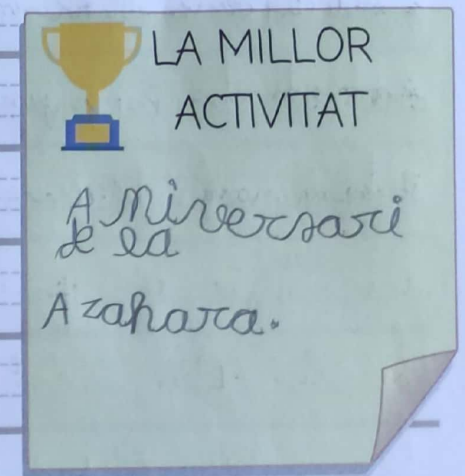 LA MILLOR
ACTIVITAT
Aniversari
de la
Azahara.